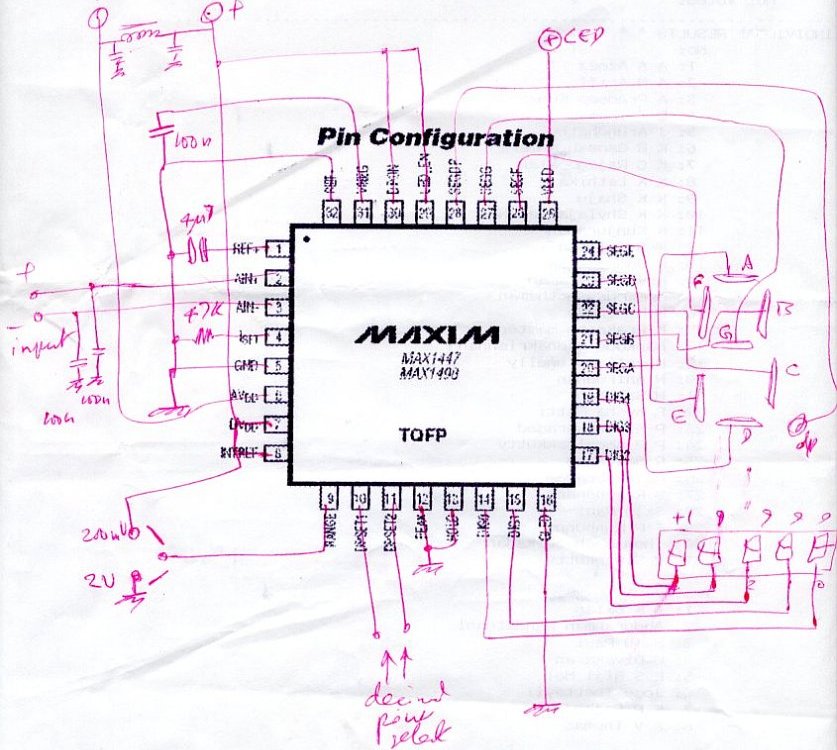 +
+ LED
Pin Configuration
100n
32 31 30 29 28 27 26 25
4μ7
REF+ 1
AIN+ 2
AIN- 3
47K
ISET 4
GND 5
AVDD 6
DVDD 7
INTREF 8
+
-
input
100n
100n
MAXIM
MAX1447
MAX1498
TQFP
24 SEGE
23 SEGD
22 SEGC
21 SEGB
20 SEGA
19 DIG4
18 DIG3
17 DIG2
A
F
B
G
C
E
D
dp
9 10 11 12 13 14 15 16
RANGE DPSET1 DPSET2 PEAK HOLD DIG0 DIG1 GLED
200mV
2V
+1 8 9 9 9
decimal
point
select